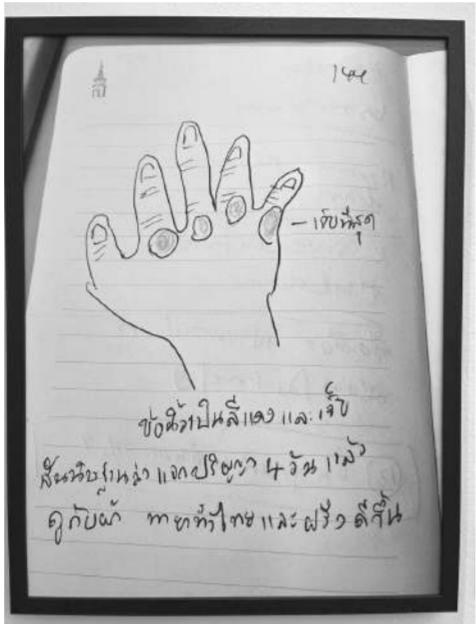 144
- เจ็บที่สุด
ข้อนิ้วเป็นสีแดง และเจ็บ
สันนิษฐานว่า แจกปริญญา 4 วัน แล้ว
ทายาทั้งไทย และฝรั่ง ดีขึ้น